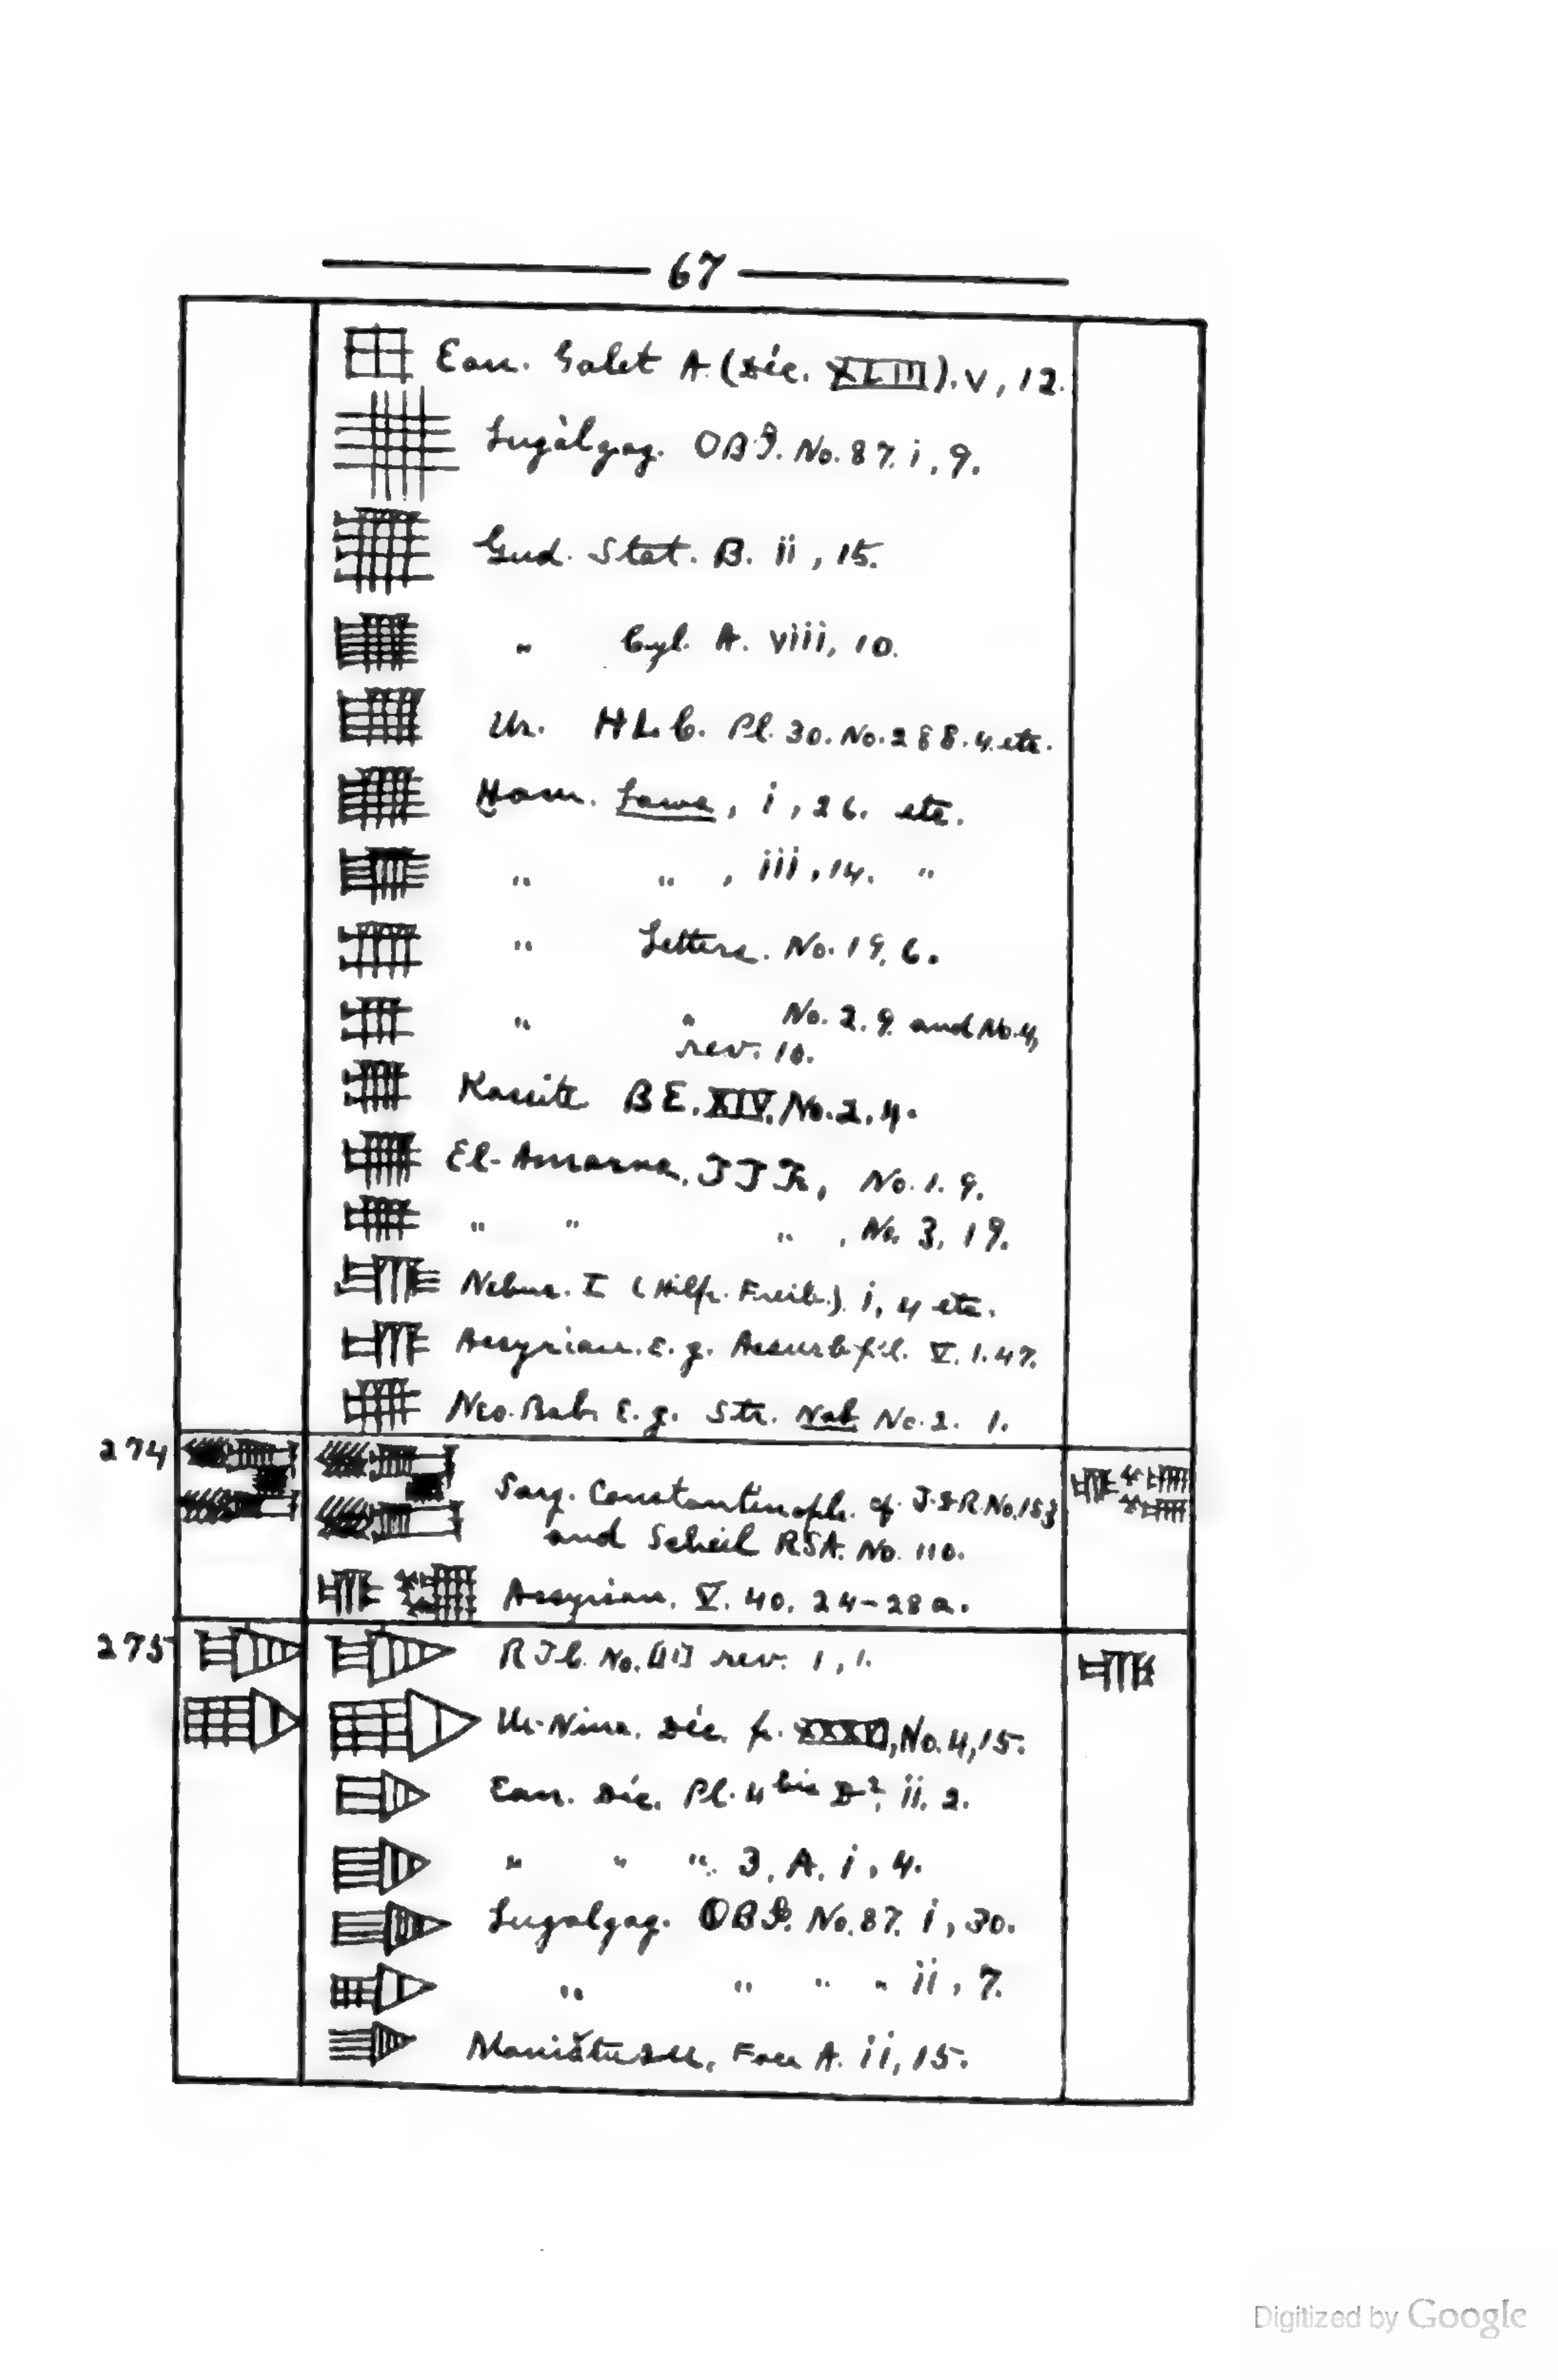 67
Ean. Galet A (Déc. XLIII). V, 12.
Lugalzag. OBI. No. 87. i, 9.
Gud. Stat. B. ii, 15.
" Cyl. A. viii, 10.
Ur. HLC. Pl. 30. No. 288. 4. etc.
Ham. Laws, i, 26. etc.
" " , iii, 14. "
" Letters. No. 19, 6.
" " No. 2. 9. and No. 4,
rev. 10.
Kassite BE. XIV. No. 2. 4.
El-Amarna, No. 1. 9.
" " " , No. 3, 19.
Nebuc. I (Hilp. Freib.) i, 4 etc.
Assyrian. E.g. Assurb. V. 1. 47.
Neo. Bab. E.g. Str. Nab No. 2. 1.
274
Sarg. Constantinople. cf. No. 153
and Scheil RSA. No. 110.
Assyrian. V. 40. 24-28 a.
275
No. rev. 1, 1.
Ur-Nina. Déc. No. 4, 15.
Ean. Déc. Pl. 4 bis D², ii. 2.
" " " 3, A. i, 4.
Lugalzag. OBI. No. 87. i, 30.
" " " " ii, 7.
Maništusu, Face A. ii, 15.
Digitized by Google